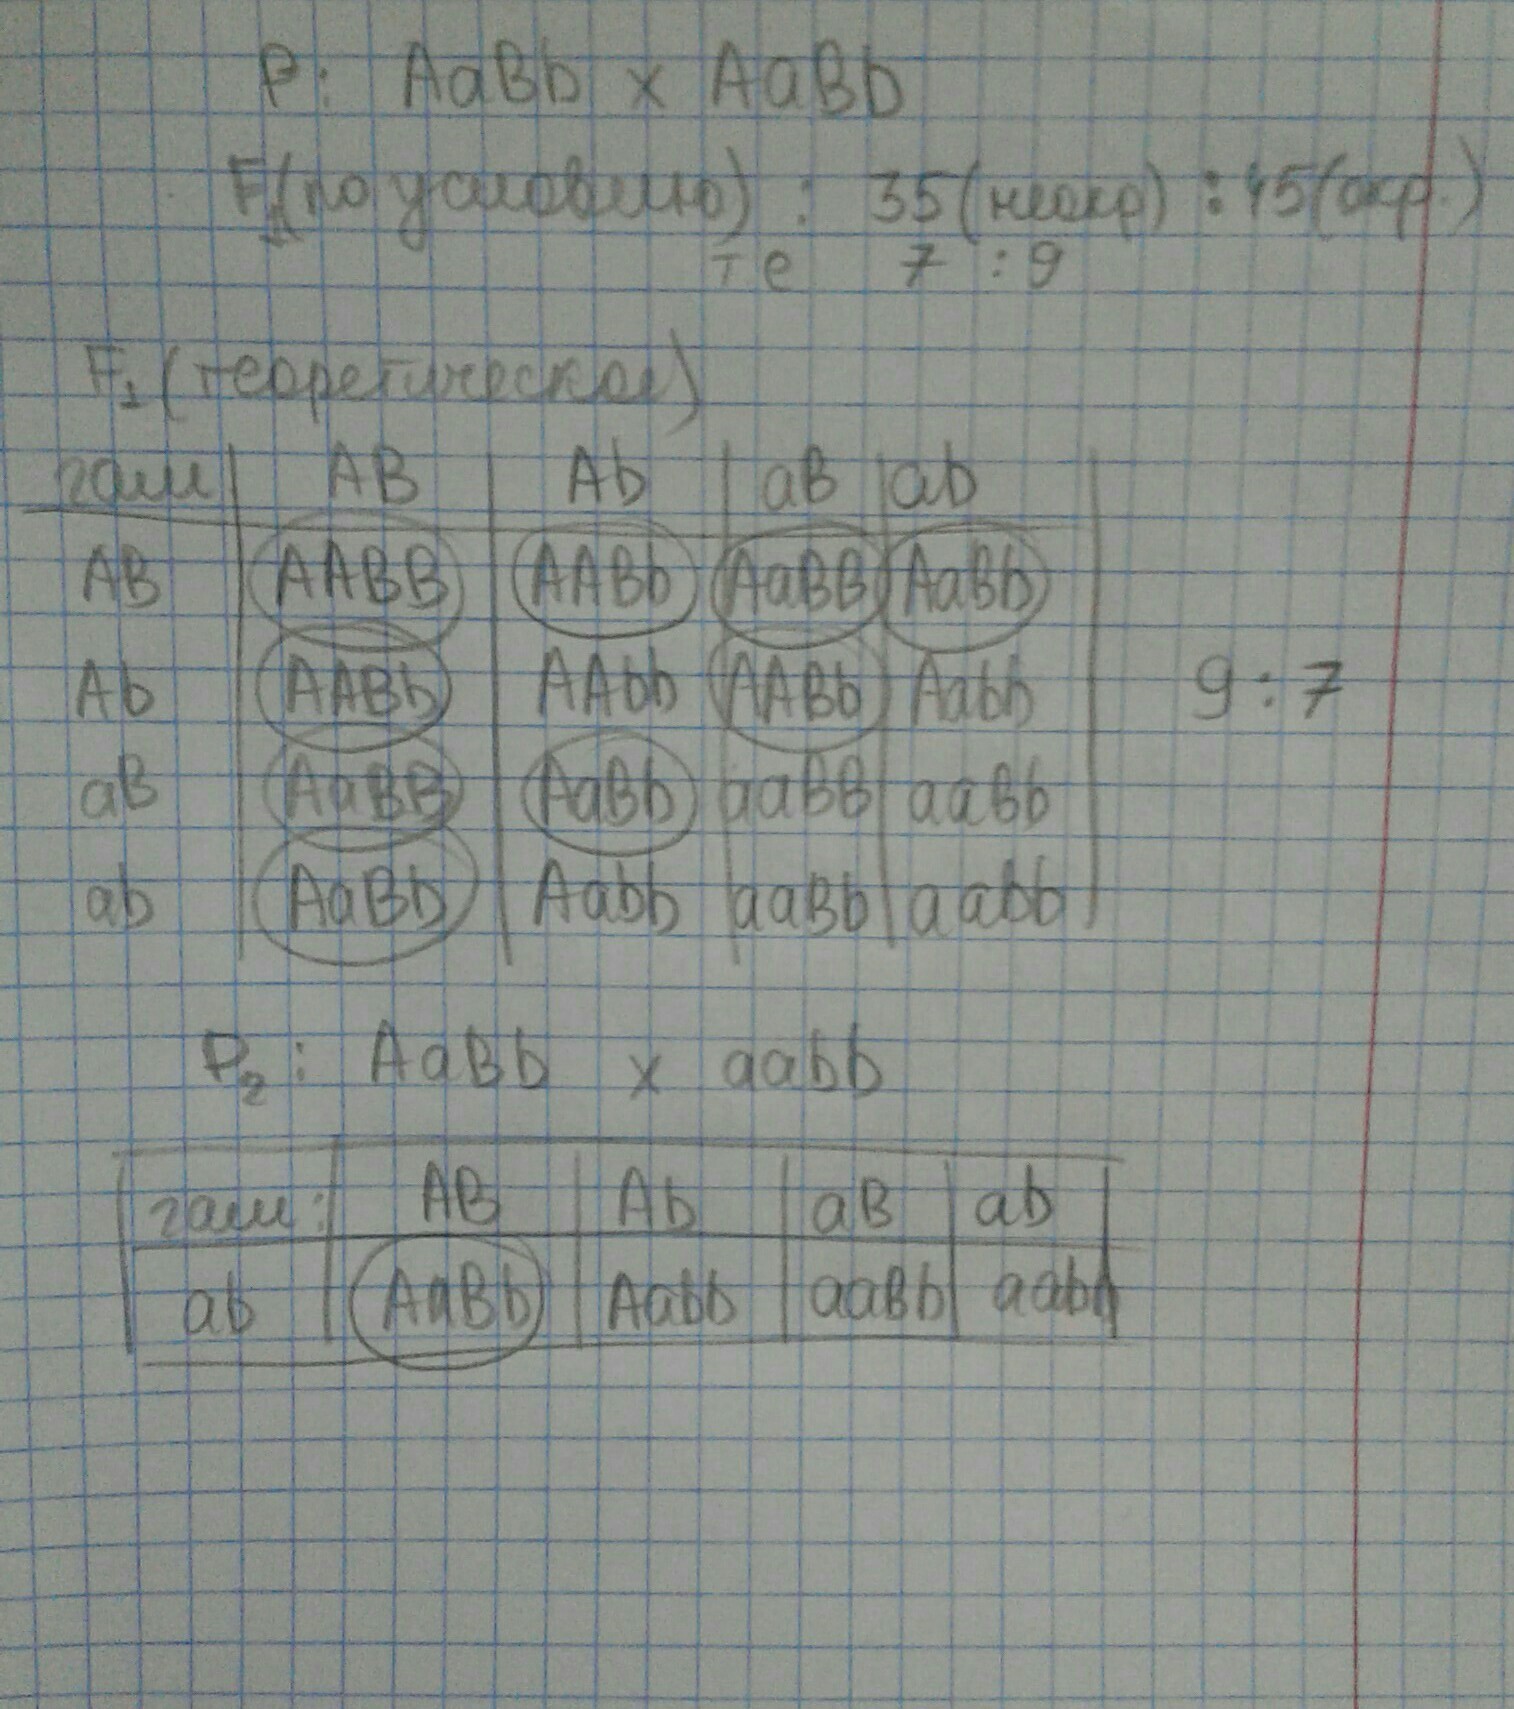 P: AaBb x AaBb
F1(по условию) : 35(неокр) : 45(окр.)
те 7 : 9
F1 (теоретическое)
гам AB Ab aB ab
AB AABB AABb AaBB AaBb
Ab AABb AAbb AABb Aabb 9 : 7
aB AaBB AaBb aaBB aaBb
ab AaBb Aabb aaBb aabb
P2 : AaBb x aabb
гам: AB Ab aB ab
ab AaBb Aabb aaBb aabb